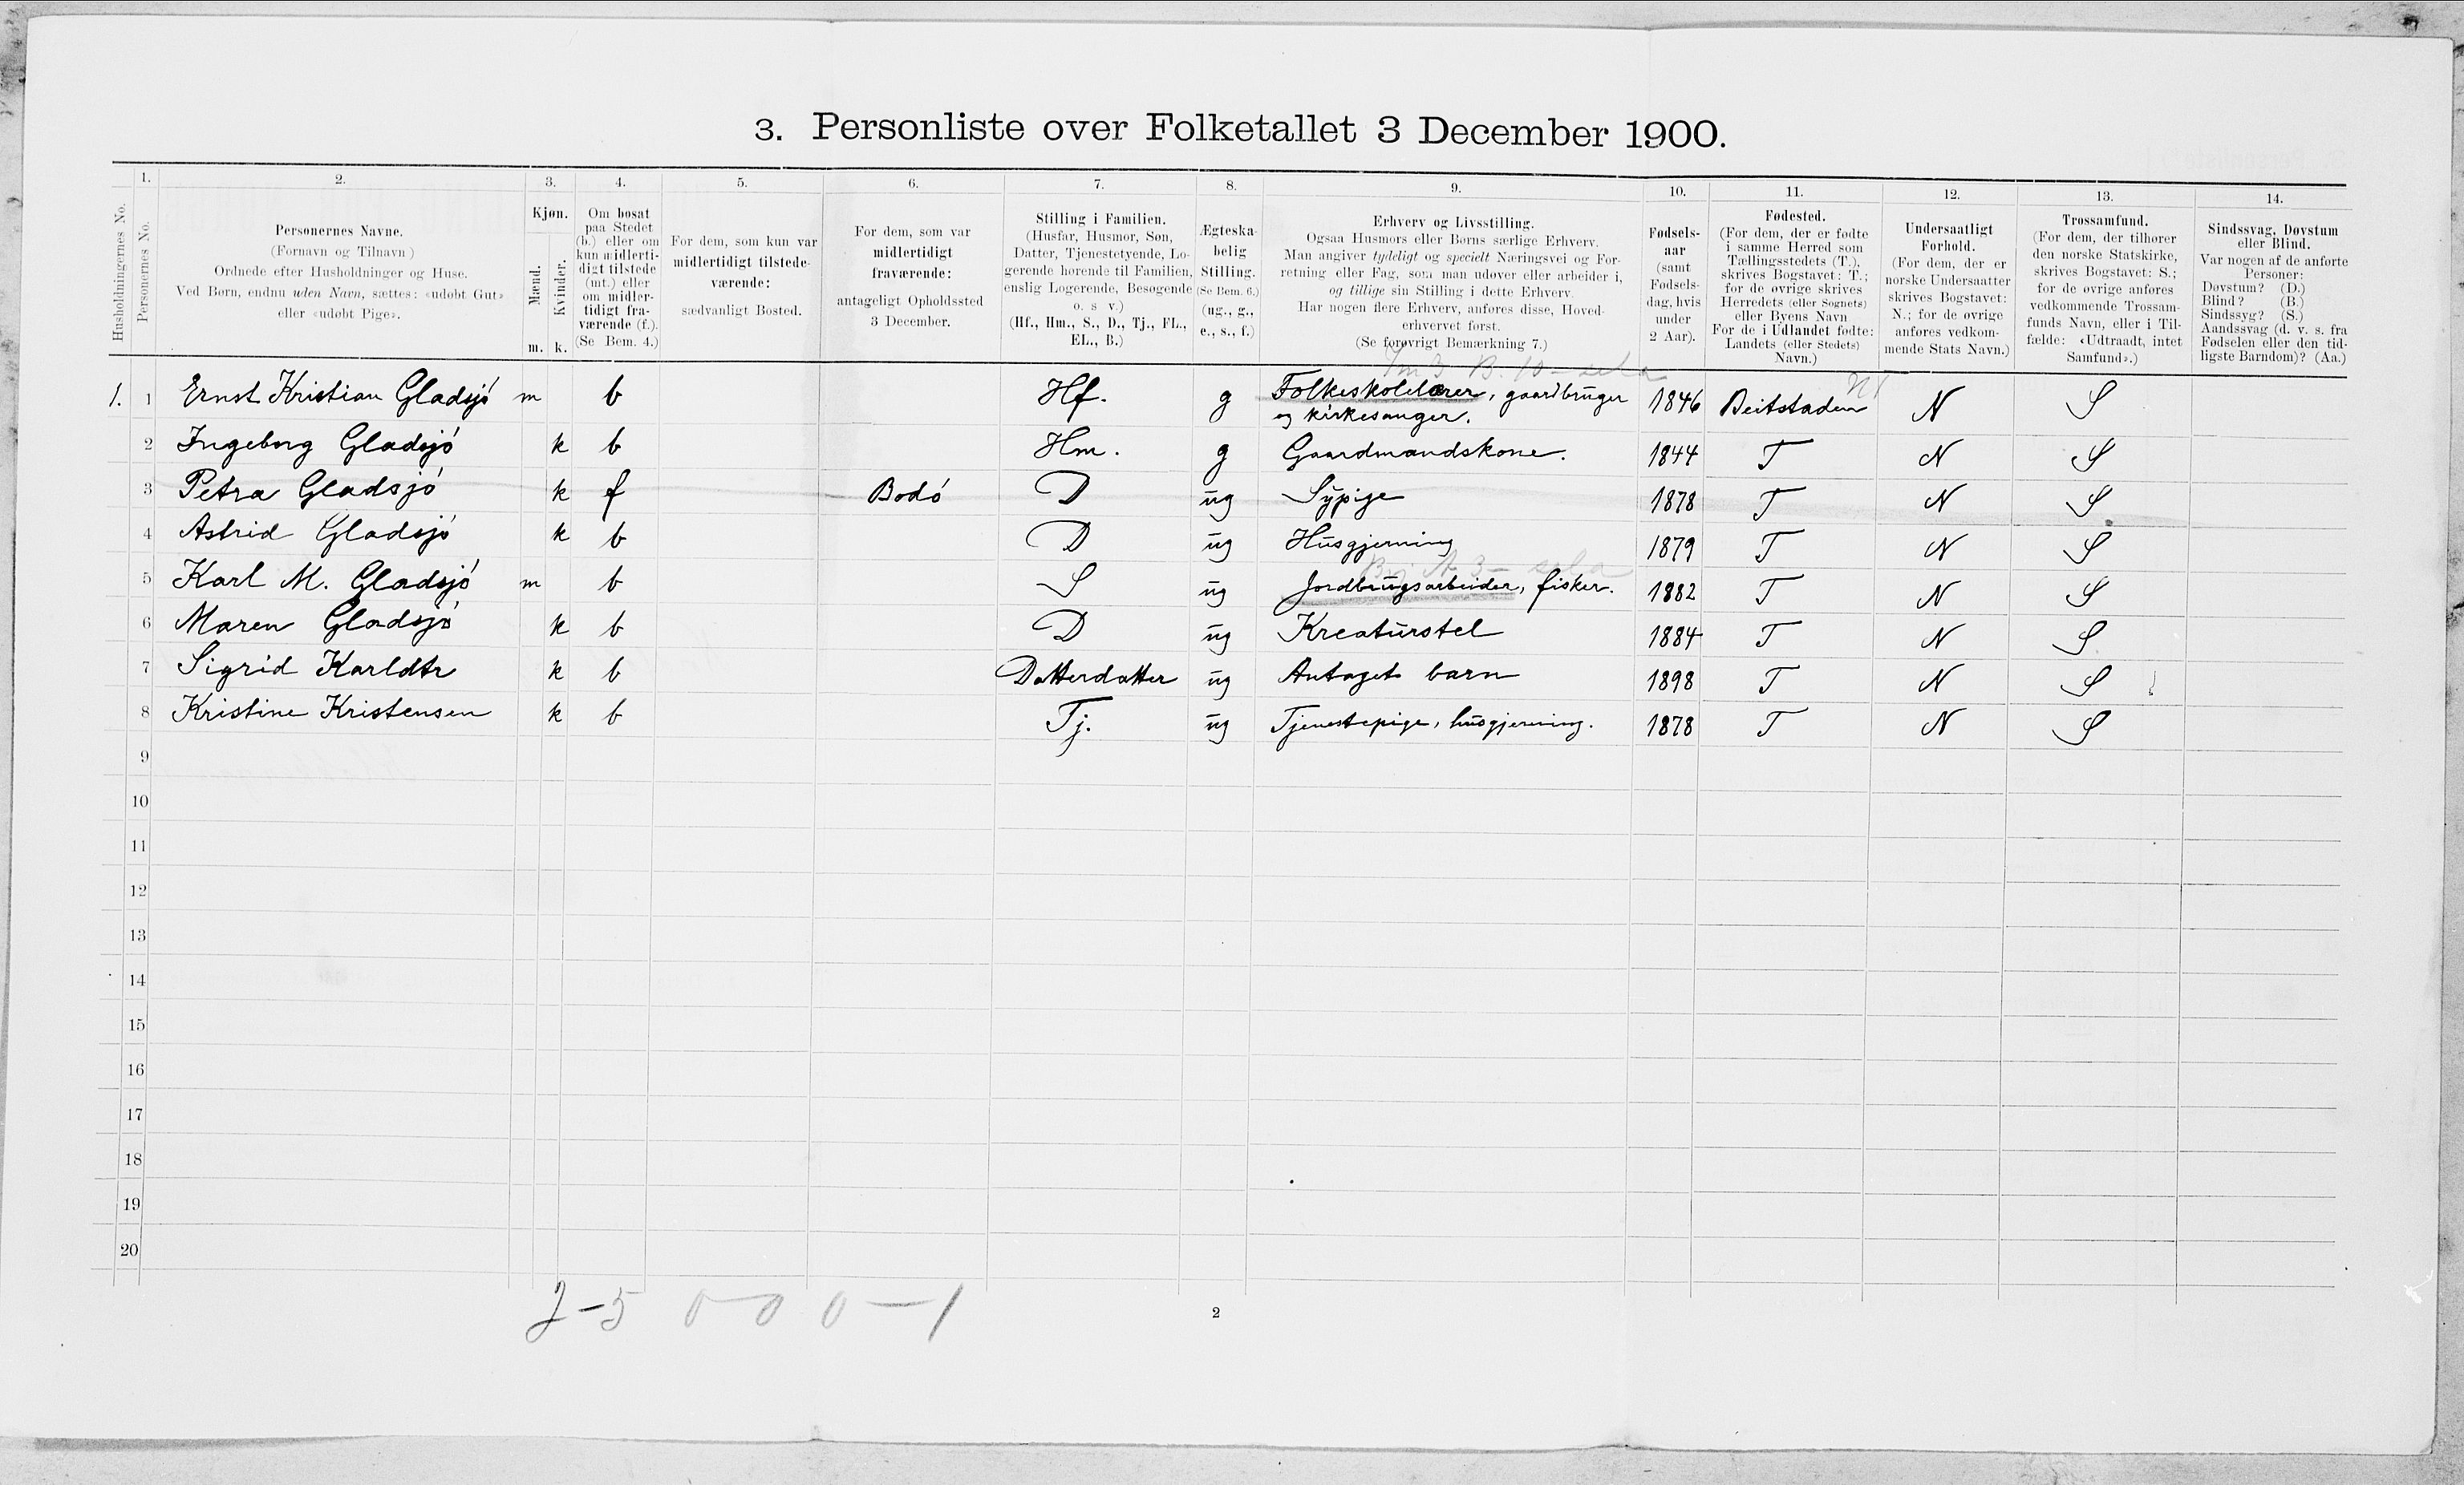 3. Personliste over Folketallet 3 December 1900.
1. 2. 3. 4. 5. 6. 7. 8. 9. 10. 11. 12. 13. 14.
Husholdningernes No.
Personernes No.
Personernes Navne.
(Fornavn og Tilnavn)
Ordnede efter Husholdninger og Huse.
Ved Børn, endnu uden Navn, sættes: «udøbt Gut»
eller «udøbt Pige».
Kjøn.
Mænd.
Kvinder.
m. k.
Om bosat
paa Stedet
(b.) eller om
kun midlerti-
digt tilstede
(mt.) eller
om midler-
tidigt fra-
værende (f.).
(Se Bem. 4.)
For dem, som kun var
midlertidigt tilstede-
værende:
sædvanligt Bosted.
For dem, som var
midlertidigt
fraværende:
antageligt Opholdssted
3 December.
Stilling i Familien.
(Husfar, Husmor, Søn,
Datter, Tjenestetyende, Lo-
gerende hørende til Familien,
enslig Logerende, Besøgende
o. s v.)
(Hf., Hm., S., D., Tj., FL.,
EL., B.)
Ægteska-
belig
Stilling.
(Se Bem. 6.)
(ug., g.,
e., s., f.)
Erhverv og Livsstilling.
Ogsaa Husmors eller Børns særlige Erhverv.
Man angiver tydeligt og specielt Næringsvei og For-
retning eller Fag, som man udøver eller arbeider i,
og tillige sin Stilling i dette Erhverv.
Har nogen flere Erhverv, anføres disse, Hoved-
erhvervet først.
(Se forøvrigt Bemærkning 7.)
Fødsels-
aar
(samt
Fødsels-
dag, hvis
under
2 Aar).
Fødested.
(For dem, der er fødte
i samme Herred som
Tællingsstedets (T.),
skrives Bogstavet: T.;
for de øvrige skrives
Herredets (eller Sognets)
eller Byens Navn
For de i Udlandet fødte:
Landets (eller Stedets)
Navn.)
Undersaatligt
Forhold.
(For dem, der er
norske Undersaatter
skrives Bogstavet:
N.; for de øvrige
anføres vedkom-
mende Stats Navn.)
Trossamfund.
(For dem, der tilhører
den norske Statskirke,
skrives Bogstavet: S.;
for de øvrige anføres
vedkommende Trossam-
funds Navn, eller i Til-
fælde: «Udtraadt, intet
Samfund».)
Sindssvag, Døvstum
eller Blind.
Var nogen af de anførte
Personer:
Døvstum? (D.)
Blind? (B.)
Sindssyg? (S.)
Aandssvag (d. v. s. fra
Fødselen eller den tid-
ligste Barndom)? (Aa.)
1. 1 Ernst Kristian Gladsjó m b Hf. g Folkeskolelærer, gaardbruger 1846 Beitstaden N S
og kirkesanger.
2 Ingeborg Gladsjó k b Hm. g Gaardmandskone. 1844 T N S
3 Petra Gladsjó k f Bodó D ug Sypige 1878 T N S
4 Astrid Gladsjó k b D ug Husgjerning 1879 T N S
5 Karl M. Gladsjó m b S ug Jordbrugsarbeider, fisker. 1882 T N S
6 Maren Gladsjó k b D ug Kreaturstel 1884 T N S
7 Sigrid Karldtr k b Datterdatter ug Antaget barn 1898 T N S
8 Kristine Kristensen k b Tj. ug Tjenestepige, husgjerning. 1878 T N S
9
10
11
12
13
14
15
16
17
18
19
20
2-5 0-0 0-1
2